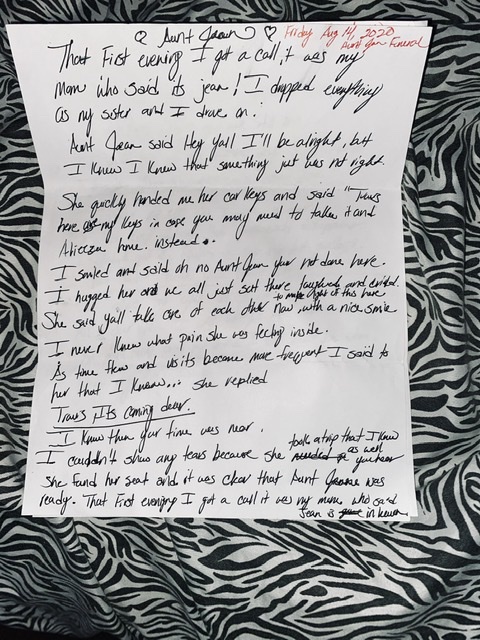 ♡ Aunt Jean ♡ Friday Aug 14, 2020
Aunt Jean Funeral
That First evening I got a call, it was my
Mom who said its jean! I dropped everything
as my sister and I drove on.
Aunt Jean said Hey Yall I'll be alright, but
I Knew I Knew that something just was not right.
She quickly handed me her car keys and said "Travis
here are my keys in case you may need to take it and
home. instead.
I smiled and said oh no Aunt Jean your not done here.
I hugged her and we all just sat there laughed and cried.
to make light of this here
She said yall take care of each other now with a nice smile
I never knew what pain she was feeling inside.
As time flew and visits became more frequent I said to
her that I Know... she replied
Travis Its coming dear.
I Knew then your time was near.
took a trip that I knew
I couldn't show any tears because she needed as well
She Fund her seat and it was clear that Aunt Jeane was
ready. That First evening I got a call it was my mom who said
Jean is in heaven